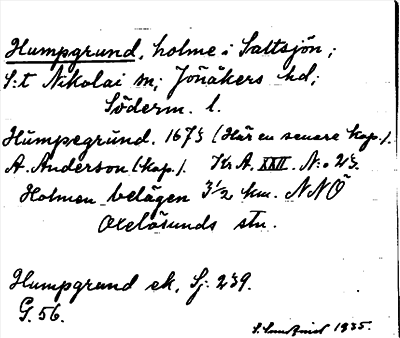 Humpgrund, holme i Saltsjön;
S:t Nikolai sn; Jönåkers hd;
Söderm. l.
Humpegrund. 1675 (Här en senare kop.).
A. Anderson (kop.). Kr. A. XXII. N:o 25.
Holmen belägen 3 1/2 km. NNÖ
Oxelösunds stn.
Humpgrund ek. Sj. 239.
G. 56.
1935.